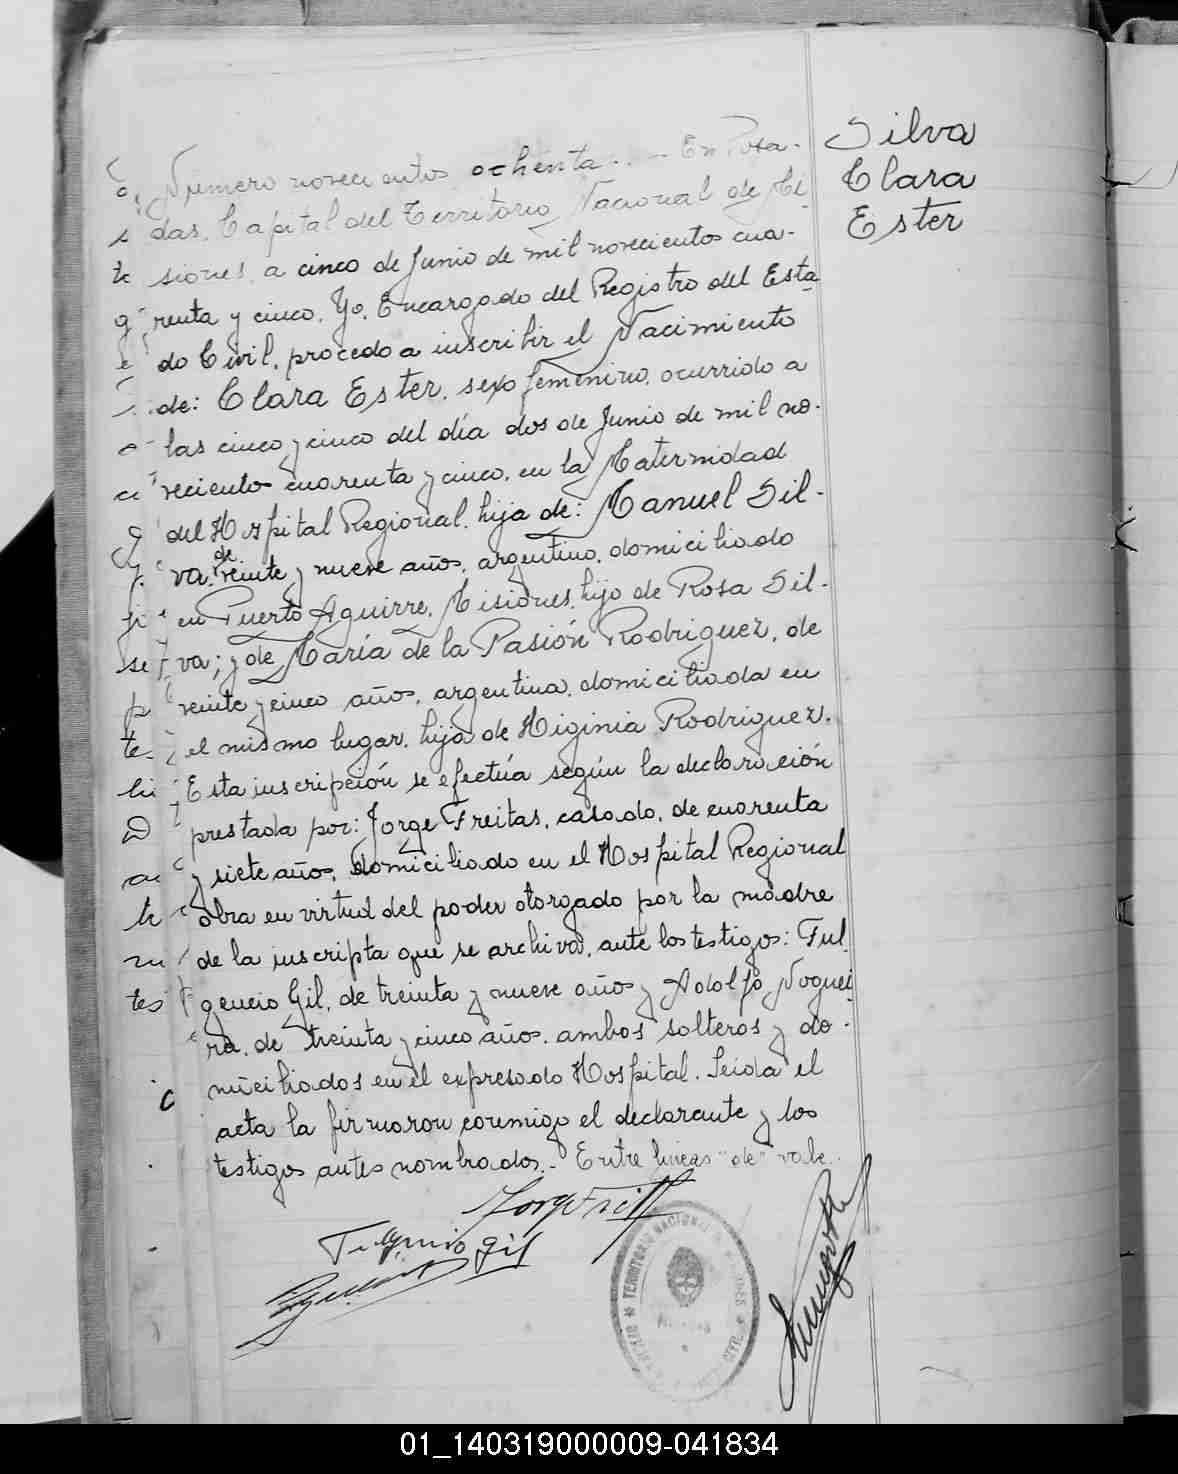 Silva
Clara
Ester
Número novecientos ochenta.. — En Posa-
das, Capital del Territorio Nacional de Mi-
siones, a cinco de Junio de mil novecientos cua-
renta y cinco, Yo, Encargado del Registro del Esta-
do Civil, procedo a inscribir el Nacimiento
de: Clara Ester, sexo femenino, ocurrido a
las cinco y cinco del día dos de Junio de mil no-
veciento cuarenta y cinco, en la Maternidad
del Hospital Regional, hija de: Manuel Sil-
va, de veinte y nueve años, argentino, domiciliado
en Puerto Aguirre, Misiones, hijo de Rosa Sil-
va; y de María de la Pasión Rodriguez, de
veinte y cinco años, argentina, domiciliada en
el mismo lugar, hija de Higinia Rodriguez.
Esta inscripción se efectúa según la declaración
prestada por: Jorge Freitas, casado, de cuarenta
y siete años, domiciliado en el Hospital Regional
obra en virtud del poder otorgado por la madre
de la inscripta que se archiva, ante los testigos: Ful-
gencio Gil, de treinta y nueve años y Adolfo Noguei-
ra, de treinta y cinco años, ambos solteros y do-
miciliados en el expresado Hospital. Leida el
acta la firmaron conmigo el declarante y los
testigos antes nombrados.- Entre lineas "de" vale..
Jorge Freitas
Fulgencio Gil
TERRITORIO NACIONAL DE MISIONES
01_140319000009-041834